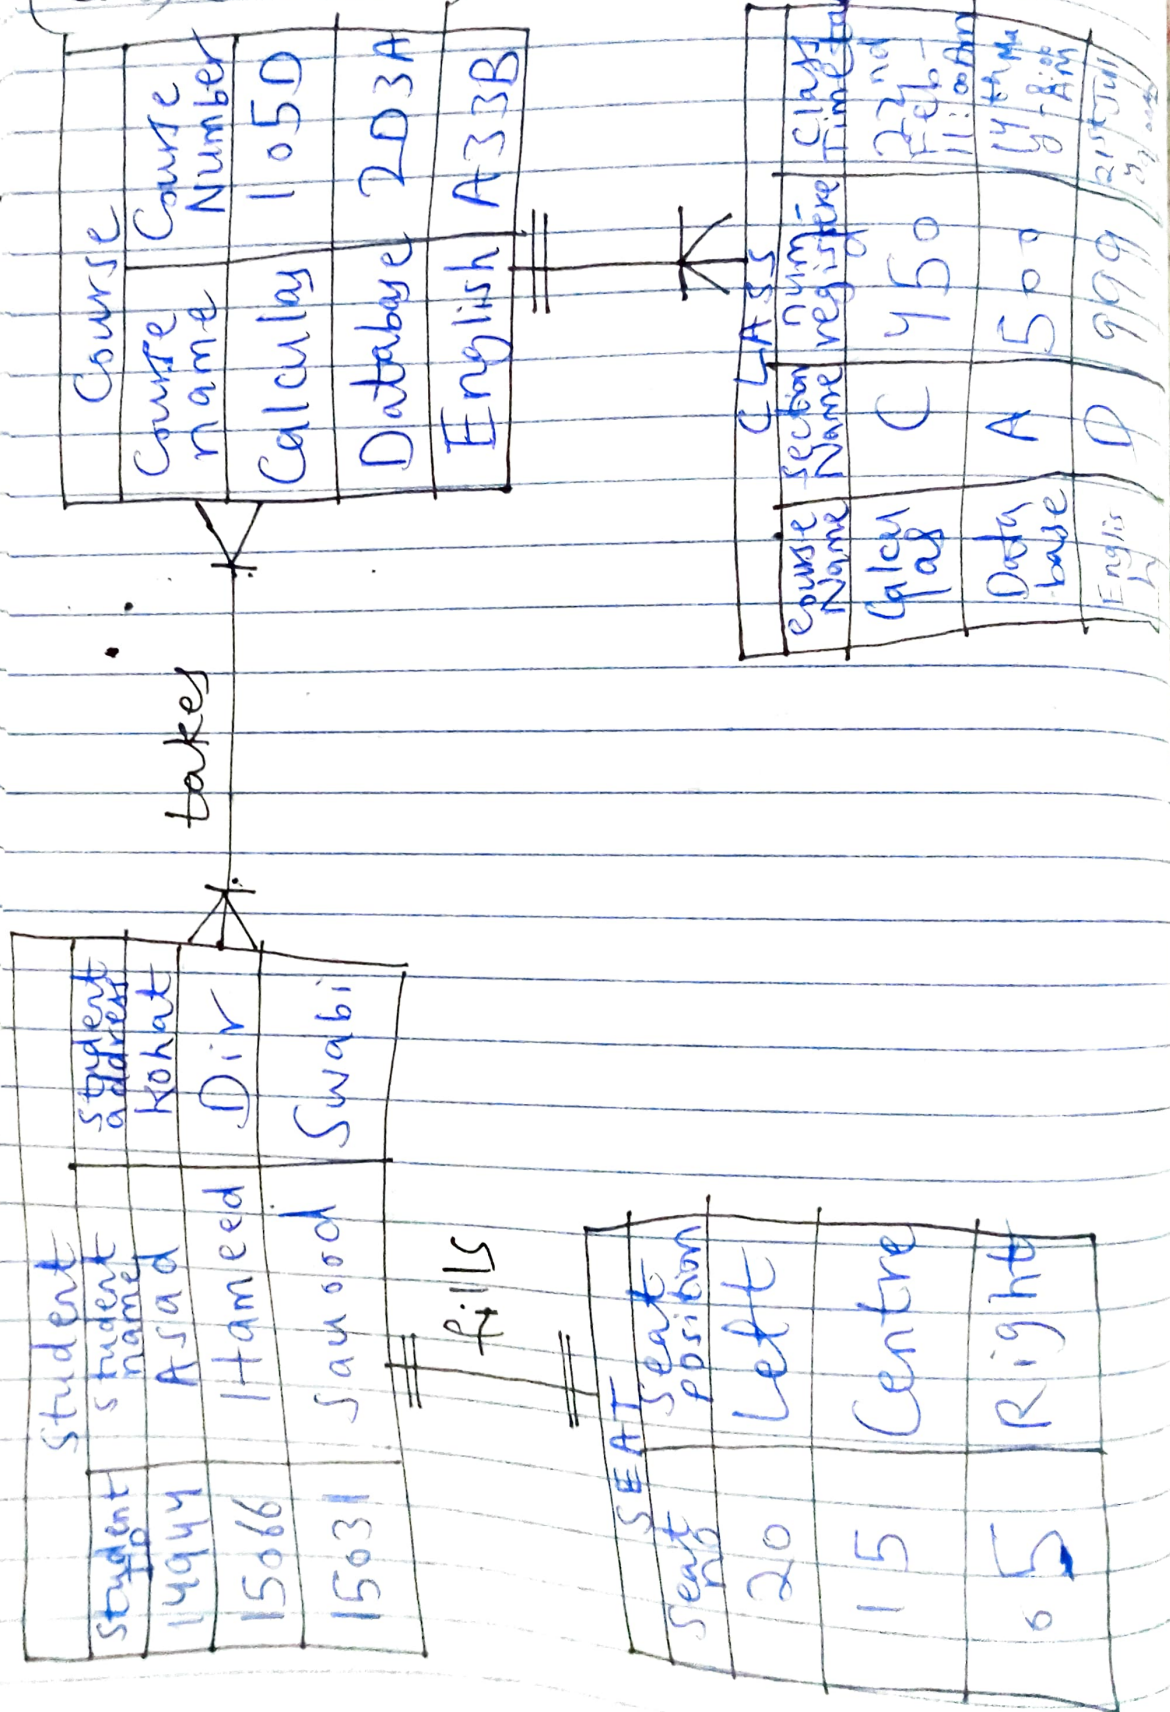 Student
Student ID Student name Student address
14944 Asad Kohat
15066 Hameed Dir
15031 Sauood Swabi
takes
Course
Course name Course Number
Calculas 105D
Database 2D3A
English A33B
fills
SEAT
Seat no Seat position
20 Left
15 Centre
05 Right
CLASS
Course Name Section Name num- registere Class Time
Calcul as C 450 22nd Feb- 11:00Am
Data base A 500 14th
Englis h D 999 21st